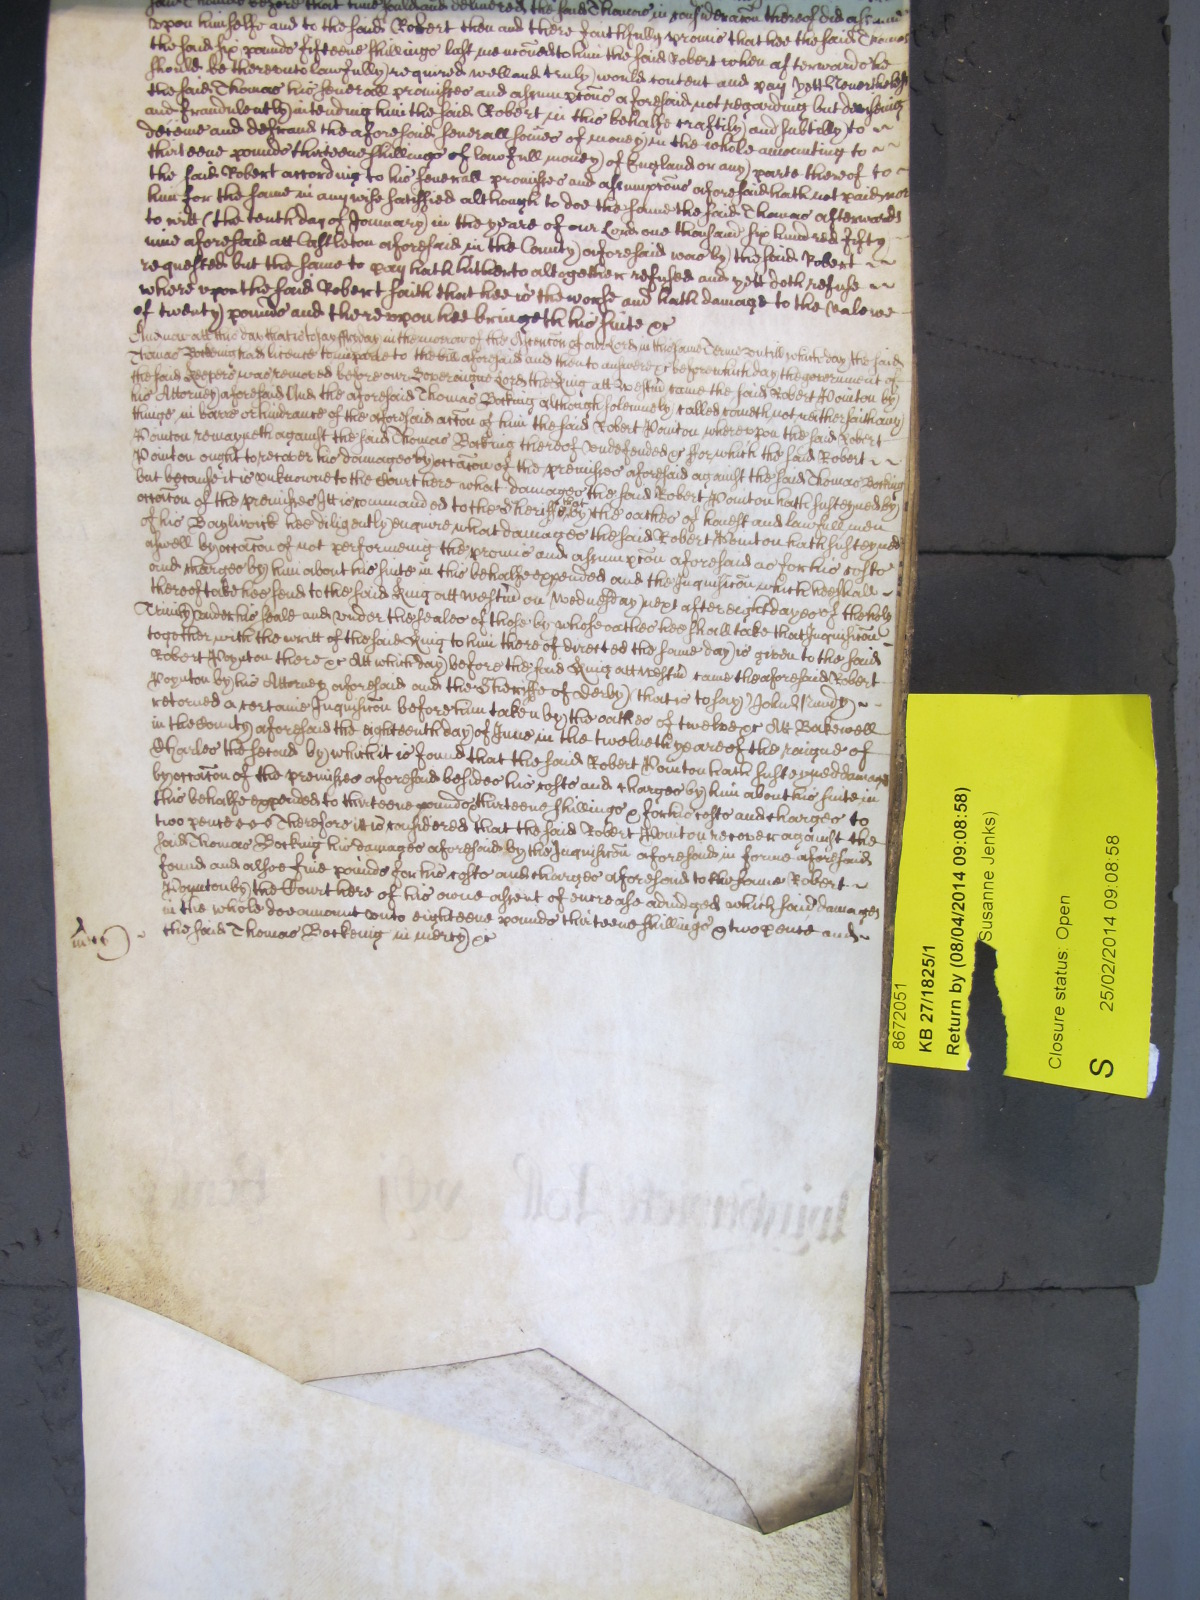 said Thomas before that time sould and delivered the said Thomas in consideracon thereof did assume
upon himselfe and to the said Robert then and there faithfully promis that hee the said Thomas
the said six pounds fifteene shillings last menconed to him the said Robert when afterwards he
should be thereunto lawfully required well and truly would content and pay Yett Neverthelesse
the said Thomas his severall promises and assumpcons aforesaid not regarding but devising
and fraudulently intending him the said Robert in this behalfe craftily and subtilly to
deceive and defraud the aforesaid severall somes of money in the whole amounting to
thirteene pounds thirteene shillings of lawfull money of England or any parte thereof to
the said Robert according to his severall promises and assumpcons aforesaid hath not paid nor
him for the same in any wise satisfied although to doe the same the said Thomas afterwards
to witt (the tenth day of January) in the yeare of our Lord one thousand six hundred fifty
nine aforesaid att Castleton aforesaid in the County aforesaid was by the said Robert
requested but the same to pay hath hitherto altogether refused and yett doth refuse
whereupon the said Robert saith that hee is the worse and hath damage to the valewe
of twenty pounds and thereupon hee bringeth his suite &c
And now att this day that is to say ffryday in the morrow of the Ascencon of our Lord in this same Terme untill which day the said
Thomas Bocking had licence to imparle to the bill aforesaid and then to answere &c before which day the government of
the said Keepers was removed before our Soveraigne Lord the King att Westm came the said Robert Pointon by
his Attorney aforesaid And the aforesaid Thomas Bocking although solemnely called cometh not neither saith any
thinge in barre or hindrance of the aforesaid accon of him the said Robert Pointon whereupon the said Robert
Pointon remayneth against the said Thomas Bocking thereof undefended &c ffor which the said Robert
Pointon ought to recover his damages by occacon of the premises aforesaid against the said Thomas Bocking
but because it is unknowne to the Court here what damages the said Robert Pointon hath susteyned by
occacon of the premises Itt is commanded to the Sheriffe that by the oathes of honest and lawfull men
of his Bayliwick hee diligently enquire what damages the said Robert Pointon hath susteyned
aswell by occacon of not performing the promis and assumpcon aforesaid as for his costs
and charges by him about his suite in this behalfe expended and the Inquisicon which hee shall
thereof take hee send to the said King att Westm on Wednesday next after eight dayes of the holy
Trinity under his seale and under the seales of those by whose oathes hee shall take that Inquisicon
together with the writt of the said King to him thereof directed the same day is given to the said
Robert Poynton there &c Att which day before the said King att Westm came the aforesaid Robert
Poynton by his Attorney aforesaid and the Sheriffe of Derby that is to say John Mundy
retorned a certaine Inquisicon before him taken by the oathes of twelve &c Att Bakewell
in the County aforesaid the eighteenth day of June in the twelueth yeare of the raigne of
Charles the second by which it is found that the said Robert Pointon hath susteyned damages
by occacon of the premises aforesaid besides his costs and charges by him about his suite in
this behalfe expended to thirteene pounds thirteene shillings & for his costs and charges to
two pence Therefore it is considered that the said Robert Pointon recover against the
said Thomas Bocking his damages aforesaid by the Inquisicon aforesaid in forme aforesaid
found and alsoe five pounds for his costs and charges aforesaid to the same Robert
Poynton by the Court here of his owne assent of encrease adiudged which said damages
in the whole doe amount unto eighteene pounds thirteene shillings & two pence and
the said Thomas Bockeing in mercy &c
8672051
KB 27/1825/1
Return by (08/04/2014 09:08:58)
Susanne Jenks)
Closure status: Open
S
25/02/2014 09:08:58